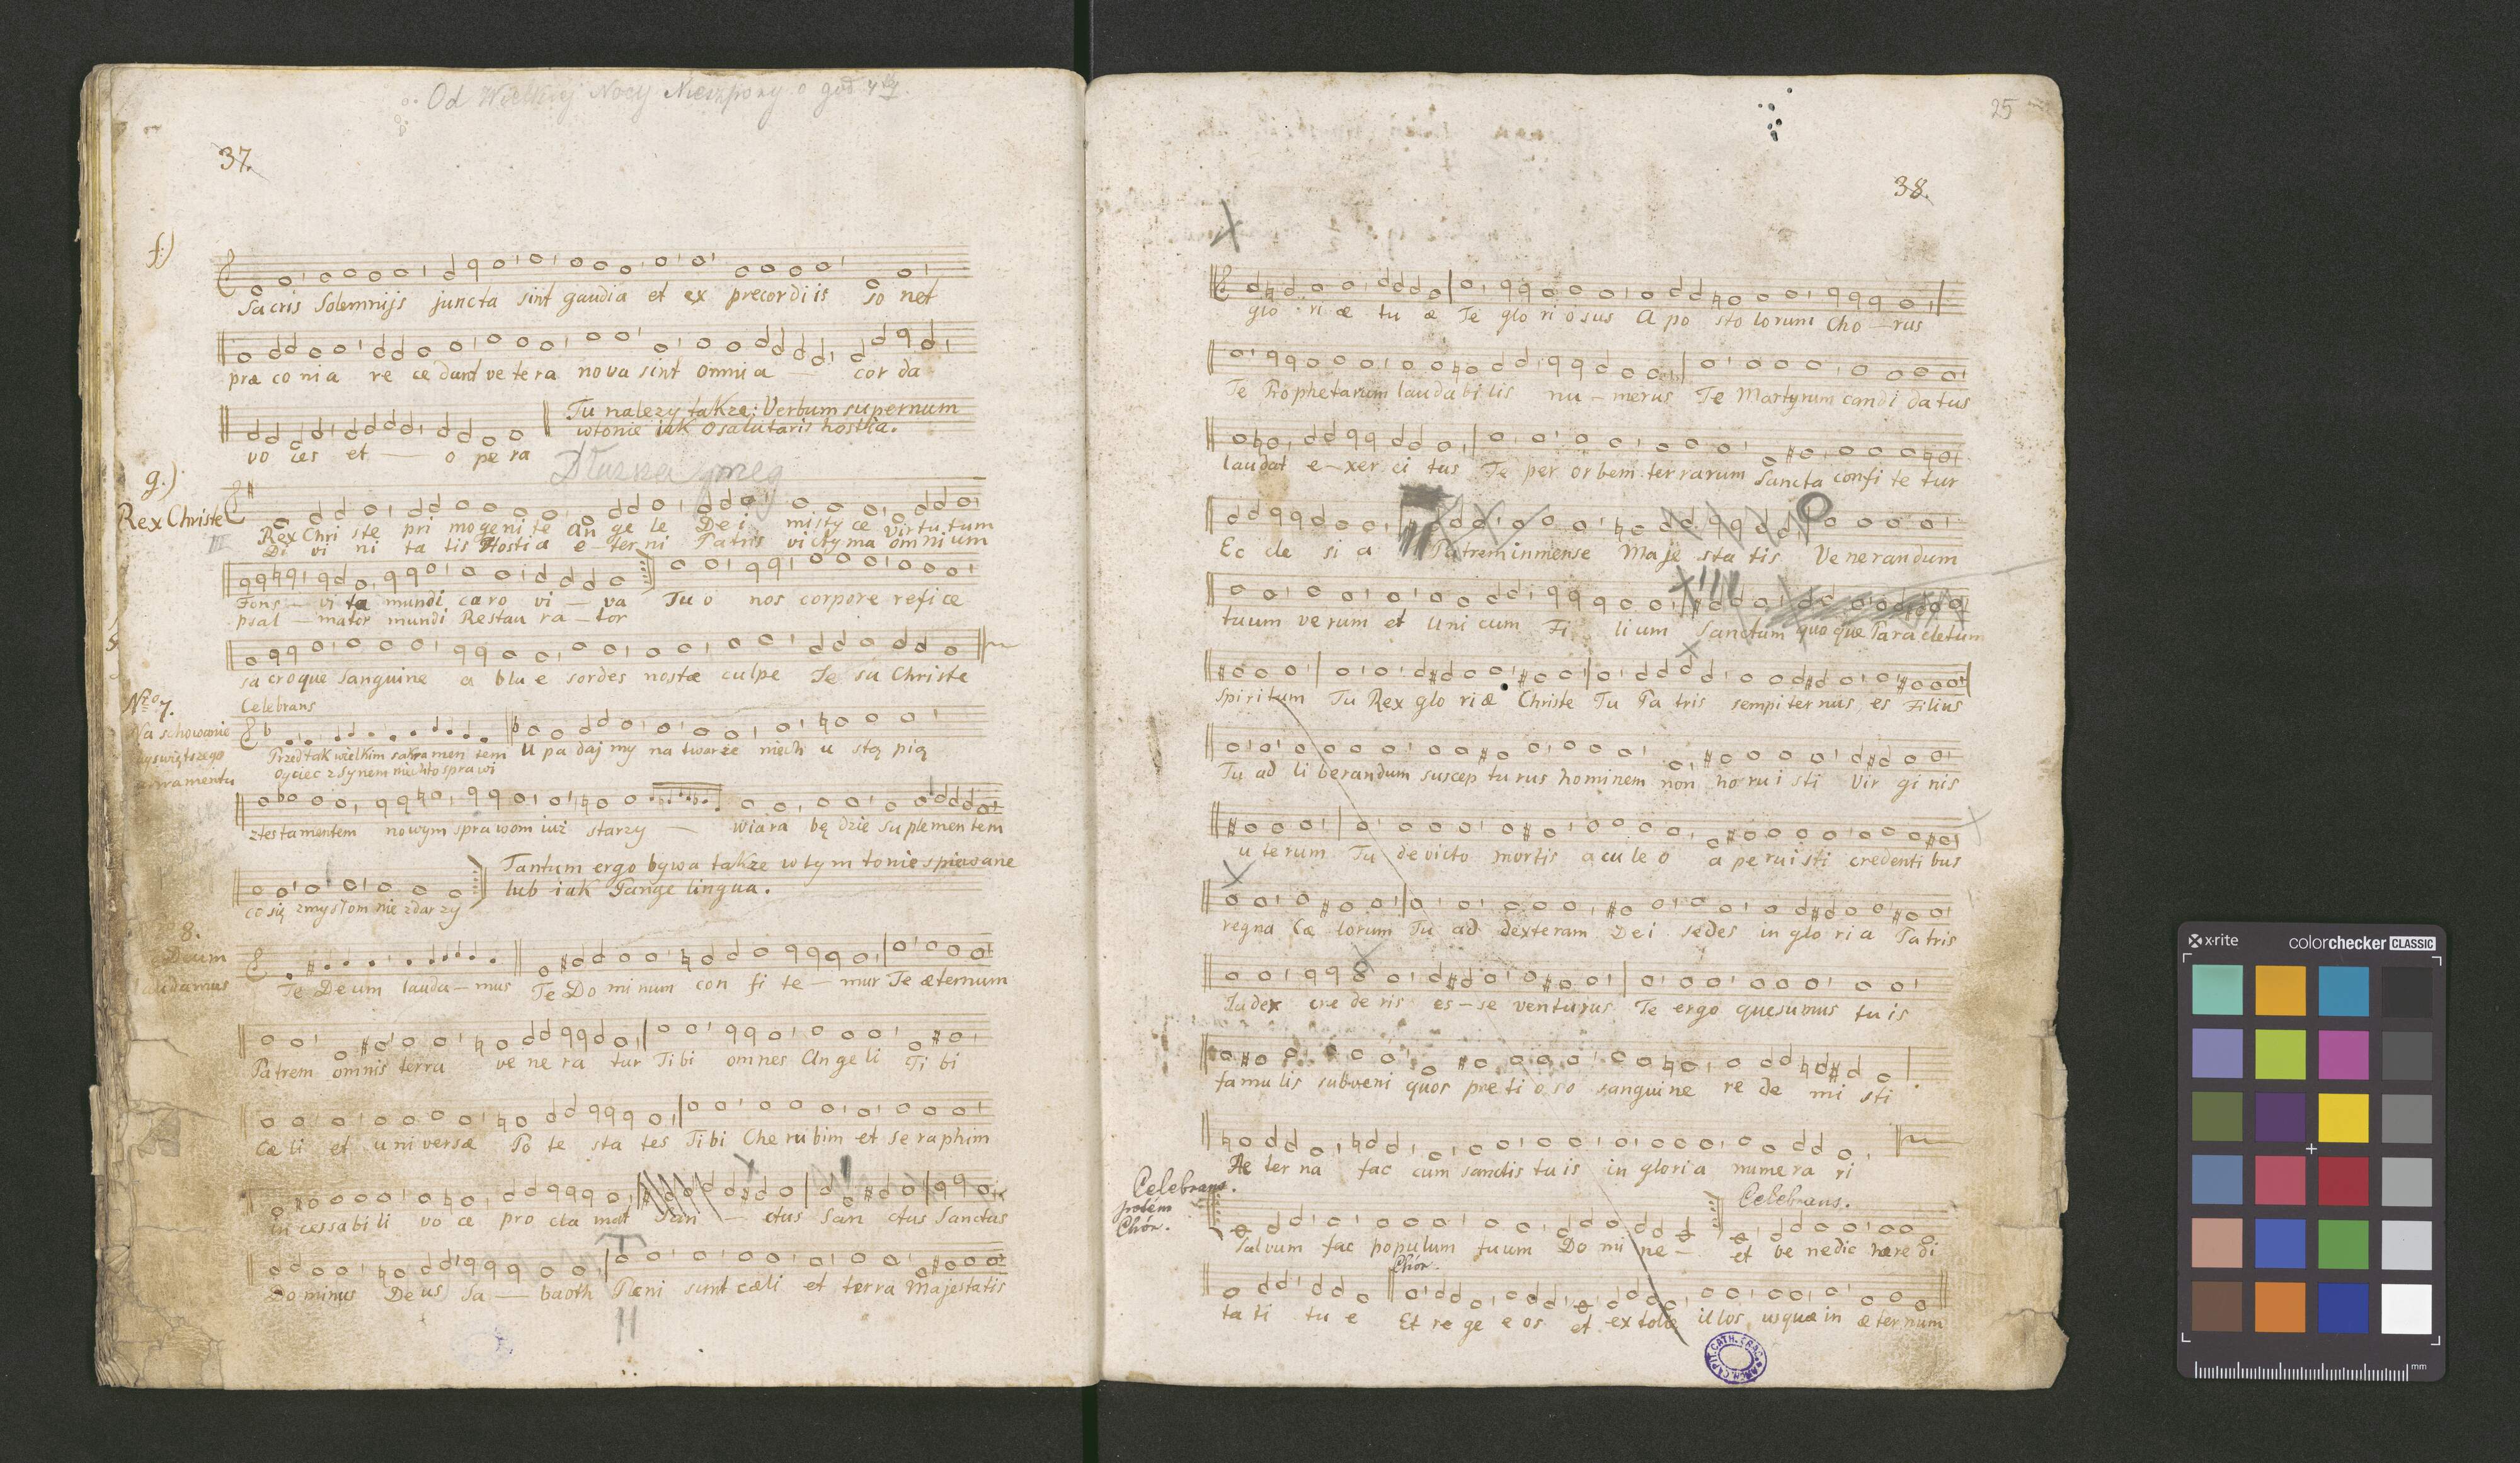 Od Wielkiej Nocy Nieszpory o god 4tej.
37.
f.)
Sacris Solemnijs juncta sint gaudia et ex precordiis so net
præ co nia re ce dant ve te ra no va sint omni a — cor da
vo ces et — o pe ra
Tu nalezy także: Verbum supernum
wtonie iak O salutaris hostia.
g.)
Rex Christe
III
Rex Chri ste pri mo geni te an ge le De i misty ce Vir tu tum
Di vi ni ta tis Hosti a e – ter ni Patris victy ma omni um
Fons — vi ta mundi caro vi — va Tu o nos corpore refi ce
psal — mator mundi Restau ra – tor
sa croque sanguine a blu e sordes nostæ culpe Je su Christe
Nro 7.
Na schowanie
Celebrans
Przed tak wielkim sakra men tem U pa daj my na twarze niech u stą pią
Oyciec z Synem niech to spra wi
ztestamentem nowym sprawom iuż starzy — wiara bę dzie su plemen tem
co się zmysłom nie zdar zy
Tantum ergo bywa także w tym tonie spiewane
lub iak Pange lingua.
8.
Deum
laudamus
Te Deum lauda – mus Te Do mi num con fi te – mur Te æternum
Patrem omnis terra ve ne ra tur Tibi omnes Angeli Ti bi
Cæ li et uni versæ Po te sta tes Tibi Che ru bim et Se raphim
in cessabi li vo ce pro cla mat San — ctus San ctus Sanctus
Do minus De us Sa — baoth Pleni sunt cæli et terra Majestatis
25
38.
glo ri æ tu æ Te glo ri o sus A po sto lorum Cho – rus
Te Prophetarum lauda bi lis nu – merus Te Martyrum candi datus
laudat e – xer ci tus Te per orbem terrarum Sancta confi te tur
Ec cle si a Patrem inmense Maje sta tis Ve nerandum
tuum verum et Uni cum Fi li um Sanctum quo que Para cletum
Spiritum Tu Rex glo riæ Christe Tu Pa tris sempi ter nus es Filius
Tu ad li berandum suscep tu rus hominem non ho ru i sti Vir gi nis
u te rum Tu de victo mortis acu le o a pe rui sti credenti bus
regna Cæ lorum Tu ad dexteram De i sedes in glo ri a Patris
Iudex cre de ris es – se venturus Te ergo quesumus tu is
famu lis subveni quos pre ti o so sanguine re de mi sti
Ae ter na fac cum sanctis tu is in gloria nume ra ri
Celebrans.
potém
Chór.
Celebrans.
Salvum fac populum tuum Do mi ne – et be nedic hære di
Chór.
ta ti tu e Et re ge e os et ex tolle illos usquæ in æ ternum